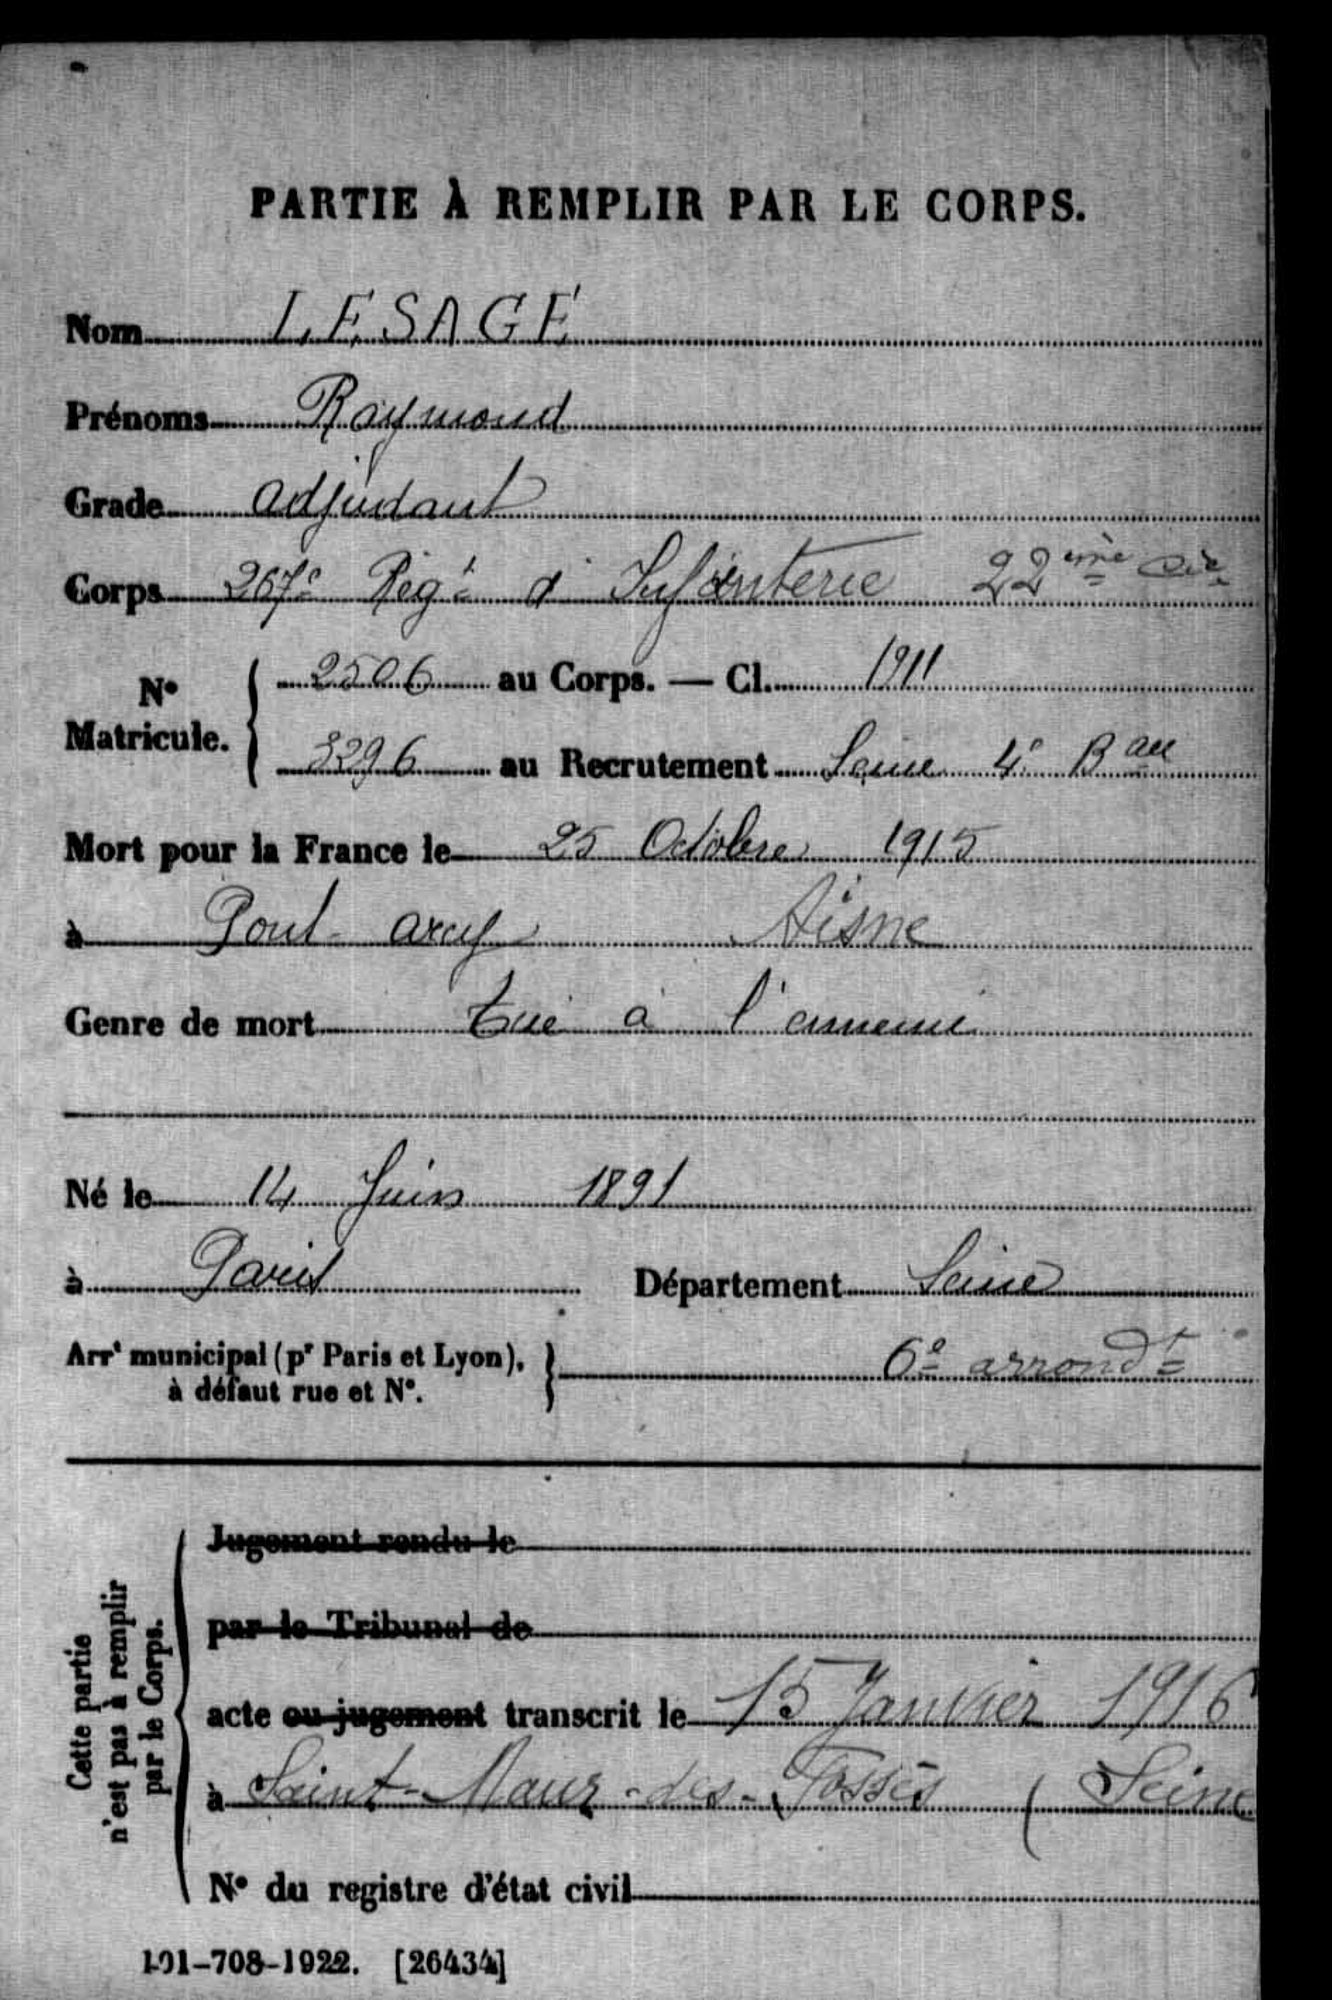 PARTIE À REMPLIR PAR LE CORPS.
Nom LESAGE
Prénoms Raymond
Grade adjudant
Corps 267e Régt d'Infanterie 22ème Cie
N° Matricule. 2506 au Corps. — Cl. 1911
3296 au Recrutement Seine 4e Bau
Mort pour la France le 25 Octobre 1915
à Pont-arcy Aisne
Genre de mort Tué à l'ennemi
Né le 14 Juin 1891
à Paris Département Seine
Arrt municipal (pr Paris et Lyon), à défaut rue et N°. 6e arrondt
Cette partie n'est pas à remplir par le Corps.
Jugement rendu le
par le Tribunal de
acte ou jugement transcrit le 15 Janvier 1916
à Saint-Maur-des-Fossés (Seine
N° du registre d'état civil
101-708-1922. [26434]